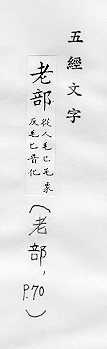 五經文字
老部
從人毛匕毛象
反毛匕音化
(老部, p.70)